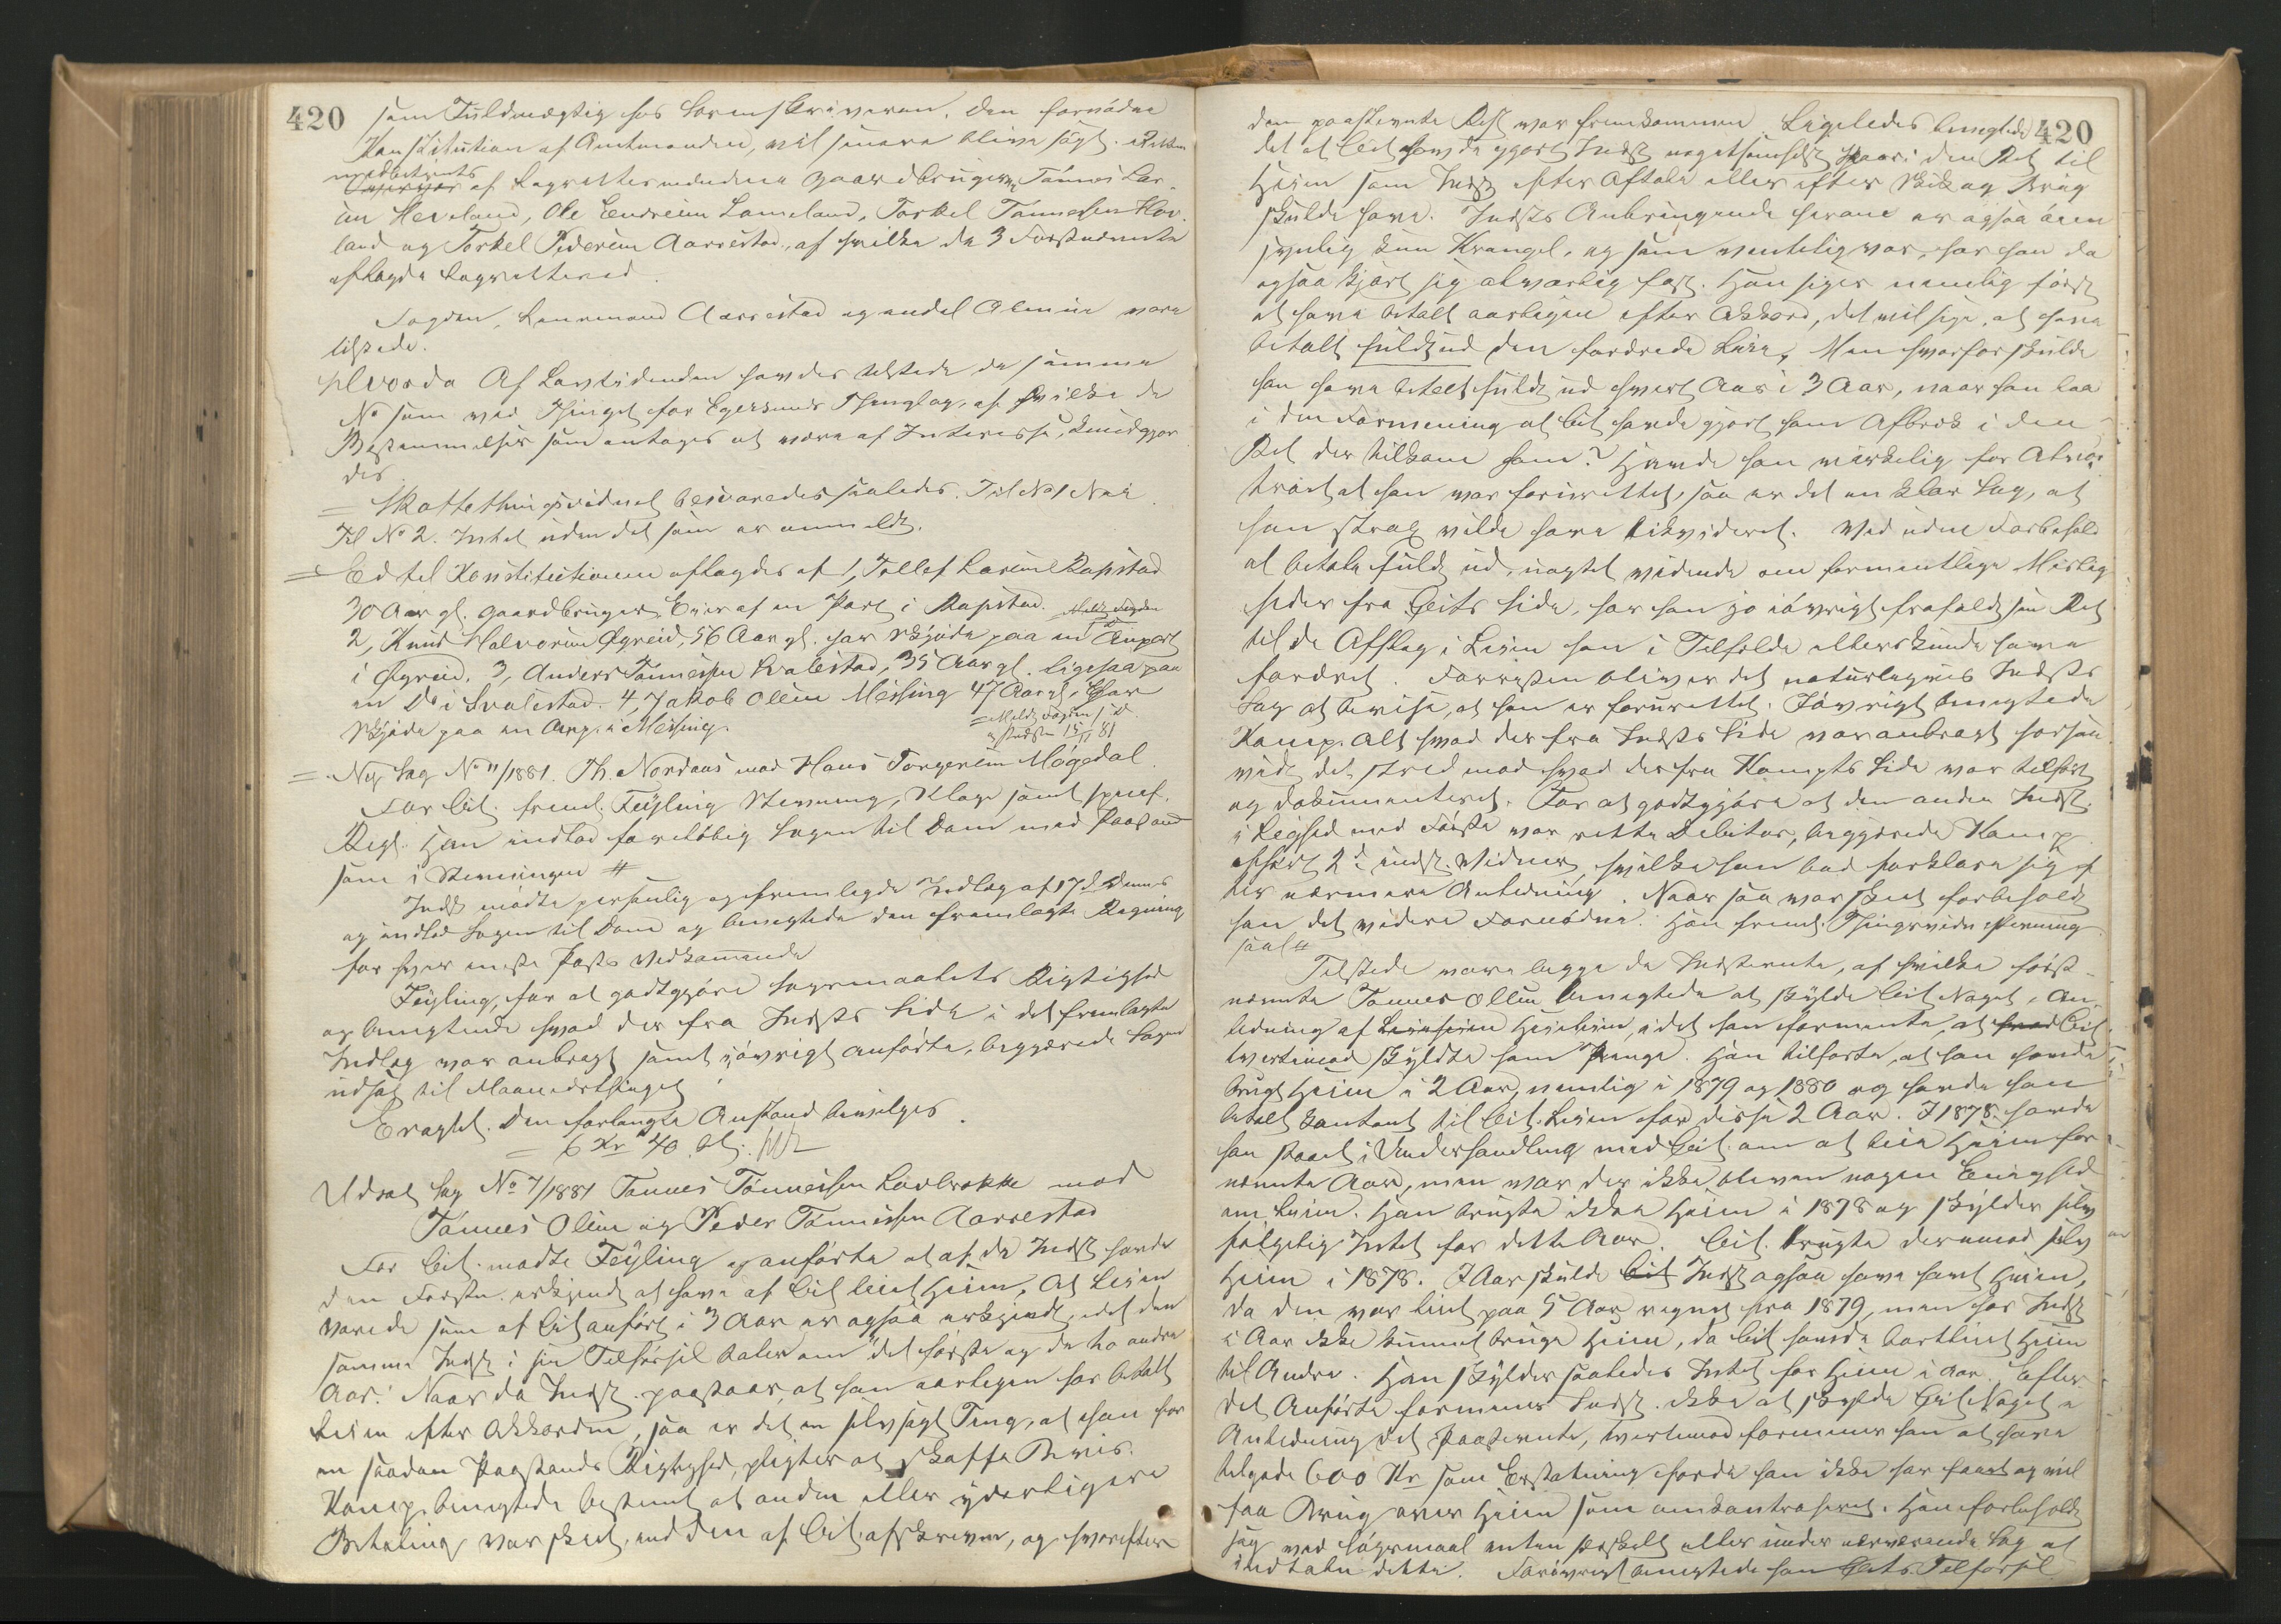 420
som Fuldmægtig hos Sorenskriveren. Den fornødne
Konstitution af Amtmanden, vil senere blive søgt. Retten
medbetjents af Lagrettesmændene Gaardbrugerne Tønnes Lar-
sen Heveland, Ole Endresen Lomeland, Torkel Tønnesen Hov-
land og Torkel Pedersen Aarrestad, af hvilke de 3 Førstnævnte
aflagde Lagrettesed.
Fogden, Lensmand Aarrestad og endel Almue vare
tilstede.
Af Lovtidenden havdes tilstede de samme
No som ved Thinget for Egersunds Thinglag, af hvilke de
Bestemmelser som antages at være af Interesse, kundgjor
des
= Skattethingsvidnet besvaredes saaledes. Til No 1 Nei
Til No 2. Intet uden det som er anmeldt.
= Ed til Konstitutionen aflagdes af 1, Tollef Larsen Rapstad
30 Aar gl. Gaardbruger, Eier af en Part i Rapstad. Meldt Fogden
2, Knud Halvorsen Øgreid, 56 Aar gl. har Skjøde paa en Anpart
i Øgreid. 3, Anders Tønnesen Svalestad, 35 Aar gl. ligesaa paa
en Do i Svalestad. 4, Jakob Olsen Messing 47 Aar gl. Har
Skjøde paa en Anp. i Messing.
= Meldt Fogden
15/11 81
= Ny Sag No 11/1881. Th. Nordaas mod Hans Torgersen Mögedal.
For Cit. freml. Feyling Stevning, Klage samt specif.
Regl. Han indlod foreløbig Sagen til Dom med Paastand
som i Stevningen #
Indst. mødte personlig og fremlagde Indlæg af 17 d. Denne
og indlod Sagen til Dom og benegtede den fremlagte Regning
for hver eneste Posts Vedkommende
Feyling, for at godtgjøre Søgsmaalets Rigtighed
og benegtende hvad der fra Indsts Side i det fremlagte
Indlæg var anbragt samt iøvrigt anførte, begjærede Sagen
udsat til Maanedsthinget
Eragtet. Den forlangte Anstand bevilges.
= 6 Kr 40
Udsat Sag No 7/1881 Tønnes Tønnesen Lavbrække mod
Tønnes Olsen og Peder Tønnesen Aarrestad
For Cit. mødte Feyling og anførte at af de Indst. havde
den Første erkjendt at have af Cit. leiet Heien, at Leien
varede som af Cit anført i 3 Aar er ogsaa erkjendt, idet den
samme Indst. i sin Tilførsel taler om "det første og de to andre
Aar". Naar da Indst. paastaar, at han aarligen har betalt
Leien efter Akkorden, saa er det en selvsagt Ting, at han for
en saadan Paastands Rigtighed, pligter at skaffe Bevis.
Komp. benegtede bestemt at anden eller yderligere
Betaling var skeet, end den af Cit. afskreven, og hvorefter
420
den paastevnte Rest var fremkommen. Ligeledes benegtede
det at Cit. havde gjort Indst. nogetsomhelst Skaar i den Ret til
Heien som Indst. efter Aftale eller efter Skik og Brug
skulde have. Indsts Anbringende herom er ogsaa øien
synlig kun Krangel, og som venteligt var, har han da
ogsaa kjørt sig alvorlig fast. Han siger nemlig først
at have betalt aarligen efter Akkord, det vil sige, at have
betalt fuldt ud den fordrede Leie. Men hvorfor skulde
han have betalt fuldt ud hvert Aar i 3 Aar, naar han laa
i den Formening at Cit. havde gjort ham Afbræk i den
Ret der tilkom ham? Havde han virkelig for Alvor
troet at han var forurettet, saa er det en klar Sag, at
han strax vilde have likvideret. Ved uden Forbehold
at betale fuldt ud, uagtet vidende om formentlige Mislig
heder fra Cits Side, har han jo iøvrigt frafaldt sin Ret
til de Afslag i Leien han i Tilfælde ellers kunde have
fordret. Forresten bliver det naturligvis Indsts
Sag at bevise, at han er forurettet. Iøvrigt benegtede
Komp. Alt hvad der fra Indsts Side var anbragt forsaa
vidt det stred mod hvad der fra Kompts Side var tilført
og dokumenteret. For at godtgjøre at den anden Indst.
i Leighed med Første var rette Debitor, begjærede Komp.
afhørt 2de indst. Vidner, hvilke han bad forklare sig ef
ter nærmere Anledning. Naar saa var skeet forbeholdt
han det videre Fornødne. Han freml. Thingsvidnestevning
saal #
Tilstede vare begge de Indstevnte, af hvilke først-
nævnte Tønnes Olsen benegtede at skylde Cit. Noget i An-
ledning af Heieleien, idet han formente, at Cit.
tvertimod skyldte ham Penge. Han tilførte, at han havde
brugt Heien i 2 Aar, nemlig i 1879 og 1880 og havde han
betalt kontant til Cit. Leien for disse 2 Aar. I 1878 havde
han staaet i Underhandling med Cit. om at leie Heien for
nævnte Aar, men var der ikke bleven nogen Enighed
om Leien. Han brugte ikke Heien i 1878 og skylder selv
følgelig Intet for dette Aar. Cit. brugte derimod selv
Heien i 1878. I Aar skulde Cit Indst. ogsaa have havt Heien,
da den var leiet paa 5 Aar regnet fra 1879, men har Indst
i Aar ikke kunnet bruge Heien, da Cit. havde bortleiet Heien
til Andre. Han skylder saaledes Intet for Heien i Aar. Efter
det Anførte formener Indst. ikke at skylde Cit. Noget i
Anledning det Paastevnte, tvertimod formener han at have
tilgode 600 Kr som Erstatning fordi han ikke har faaet og vil
faa Brug over Heien som omkontraheret. Han forbeholdt
sig ved Søgsmaal enten særskilt eller under nærværende Sag at
indtale dette. Forøvrigt benegtede han Cits Tilførsel